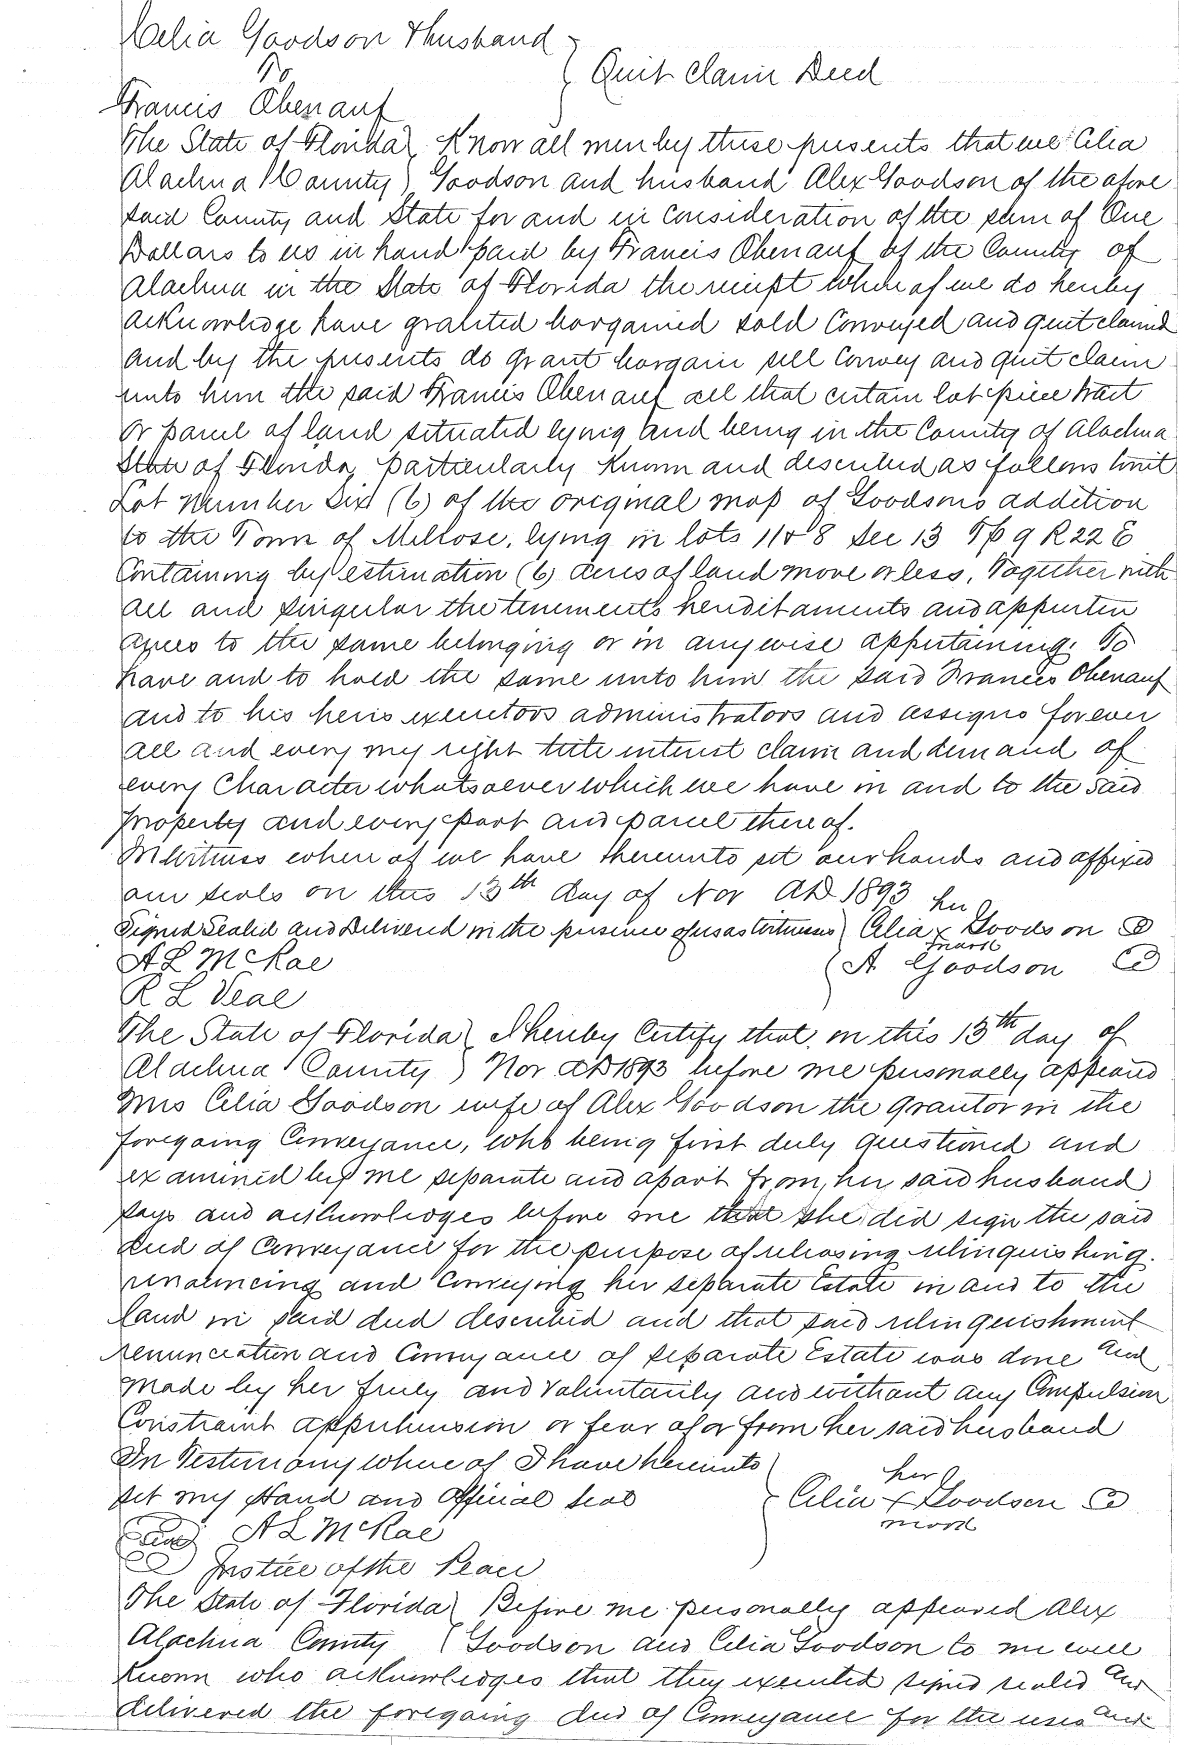 Celia Goodson & husband
To } Quit Claim Deed
Francis Obenauf
The State of Florida } Know all men by these presents that we Celia
Alachua County } Goodson and husband Alex Goodson of the afore
said County and State for and in consideration of the sum of One
Dollars to us in hand paid by Francis Obenauf of the County of
Alachua in the State of Florida the receipt whereof we do hereby
acknowledge have granted bargained sold Conveyed and quit claimed
and by the presents do grant bargain sell Convey and quit claim
unto him the said Francis Obenauf all that certain lot piece tract
or parcel of land situated lying and being in the County of Alachua
State of Florida, particularly Known and described as follows towit
Lot Number Six (6) of the original map of Goodsons addition
to the Town of Melrose, lying in lots 11 & 8 Sec 13 Tp 9 R 22 E
Containing by estimation (6) acres of land more or less, Together with
all and singular the tenements hereditaments and appurten
ances to the same belonging or in anywise appertaining. To
have and to hold the same unto him the said Francis Obenauf
and to his heirs executors administrators and assigns forever
all and every my right title interest claim and demand of
every Character whatsoever which we have in and to the said
property and every part and parcel thereof.
In Witness whereof we have thereunto set our hands and affixed
our seals on this 13th day of Nov AD 1893
her
Signed Sealed and Delivered in the presence of us as witnesses } Celia x Goodson
mark
A L McRae } A Goodson
R L Veal
The State of Florida } I hereby Certify that, on this 13th day of
Alachua County } Nov AD 1893 before me personally appeared
Mrs Celia Goodson wife of Alex Goodson the Grantor in the
foregoing Conveyance, who being first duly questioned and
examined by me separate and apart from, her said husband
says and acknowledges before me that she did sign the said
deed of Conveyance for the purpose of releasing relinquishing.
renouncing and Conveying her separate Estate in and to the
land in said deed described and that said relinquishment
renunciation and Conveyance of separate Estate was done and
made by her freely and voluntarily and without any Compulsion
Constraint apprehension or fear of or from her said husband
In Testimony whereof I have hereunto
her
set my Hand and Official seal } Celia x Goodson
mark
A L McRae
Justice of the Peace
The State of Florida } Before me personally appeared Alex
Alachua County } Goodson and Celia Goodson to me well
known who acknowledges that they executed signed sealed and
delivered the foregoing deed of Conveyance for the uses and